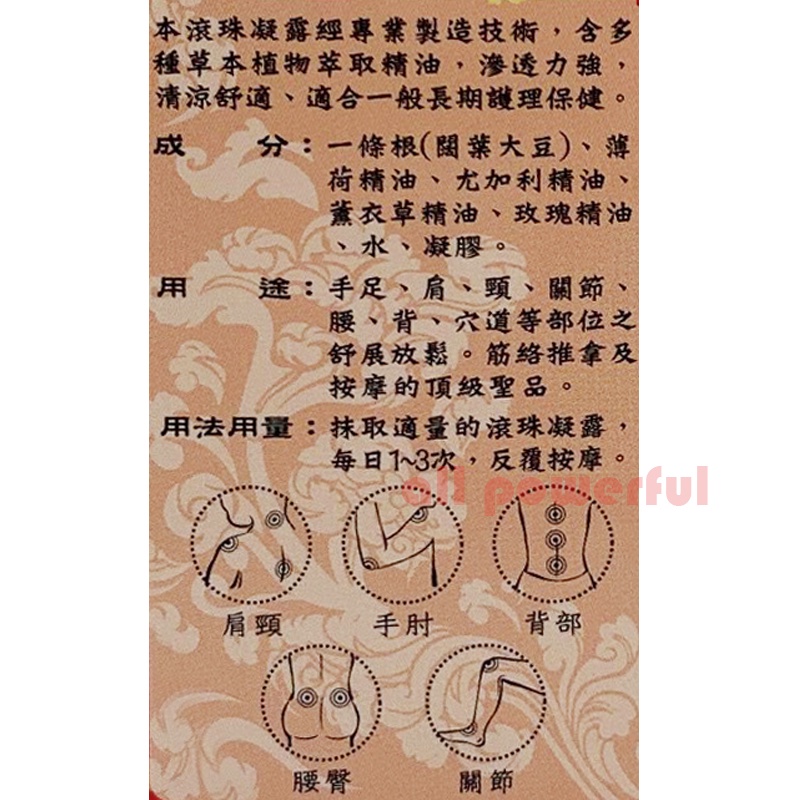 本滾珠凝露經專業製造技術，含多
種草本植物萃取精油，滲透力強，
清涼舒適、適合一般長期護理保健。
成　分：一條根(闊葉大豆)、薄
荷精油、尤加利精油、
薰衣草精油、玫瑰精油
、水、凝膠。
用　途：手足、肩、頸、關節、
腰、背、穴道等部位之
舒展放鬆。筋絡推拿及
按摩的頂級聖品。
用法用量：抹取適量的滾珠凝露，
每日1~3次，反覆按摩。
all powerful
肩頸　手肘　背部
腰臀　關節